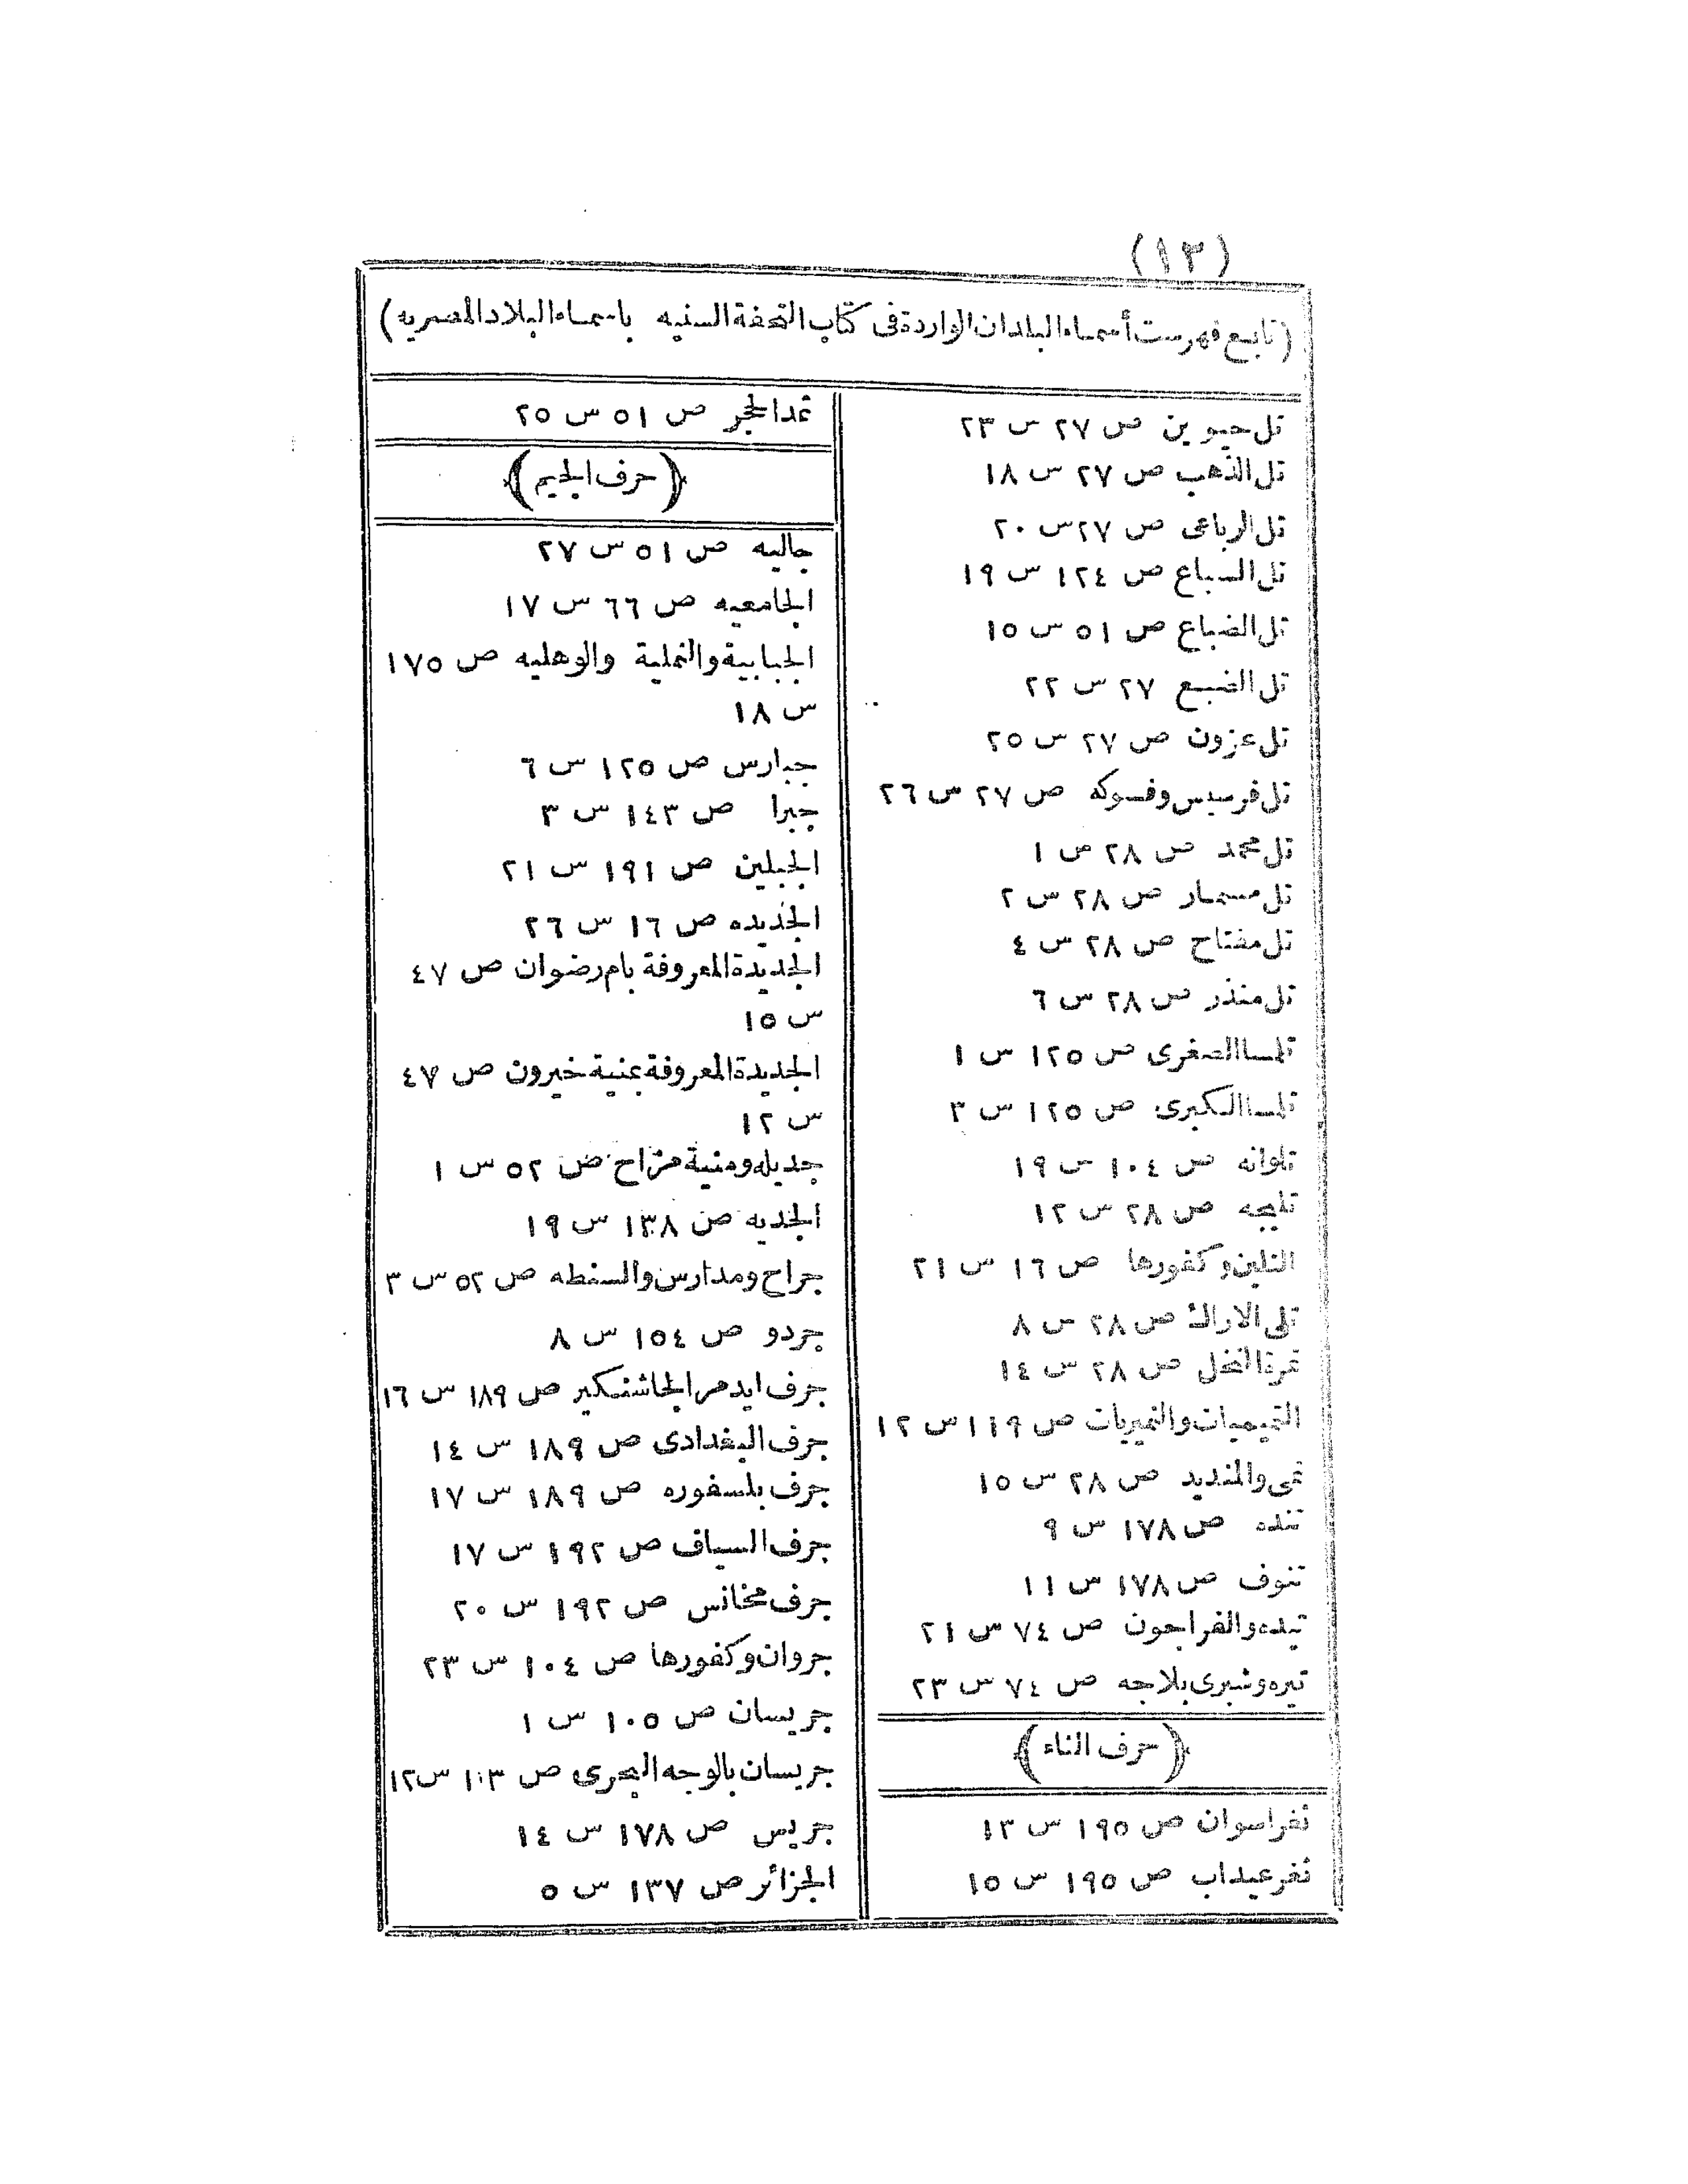 (١٣)
(تابع فهرست أسماء البلدان الواردة فى كتاب التحفة السنيه باسماء البلاد المصريه)
تل حيوين ص ٢٧ س ٢٣
تل الذهب ص ٢٧ س ١٨
تل الرباعى ص ٢٧ س ٢٠
تل السباع ص ١٢٤ س ١٩
تل الضباع ص ٥١ س ١٥
تل الضبع ٢٧ س ٢٢
تل عزون ص ٢٧ س ٢٥
تل فرسيس وفسوكه ص ٢٧ س ٢٦
تل محمد ص ٢٨ ص ١
تل مسمار ص ٢٨ س ٢
تل مفتاح ص ٢٨ س ٤
تل منذر ص ٢٨ س ٦
تلمسا الصغرى ص ١٢٥ س ١
تلمسا الكبرى ص ١٢٥ س ٣
تلوانه ص ١٠٤ س ١٩
تليجه ص ٢٨ س ١٢
التلين وكفورها ص ١٦ س ٢١
تلى الاراك ص ٢٨ س ٨
تمرة النخل ص ٢٨ س ١٤
التميميات والنميريات ص ١١٩ س ١٢
تمى والمنديد ص ٢٨ س ١٥
تنده ص ١٧٨ س ٩
تنوف ص ١٧٨ س ١١
تيده والفراجون ص ٧٤ س ٢١
تيره وشبرى بلاجه ص ٧٤ س ٢٣
(حرف الثاء)
ثغر اسوان ص ١٩٥ س ١٣
ثغر عيداب ص ١٩٥ س ١٥
ثمد الحجر ص ٥١ س ٢٥
(حرف الجيم)
جاليه ص ٥١ س ٢٧
الجامعيه ص ٦٦ س ١٧
الجبابية والنملية والوهليه ص ١٧٥
س ١٨
جبارس ص ١٢٥ س ٦
جبرا ص ١٤٣ س ٣
الجبلين ص ١٩١ س ٢١
الجديده ص ١٦ س ٢٦
الجديدة المعروفة بام رضوان ص ٤٧
س ١٥
الجديدة المعروفة بمنية خيرون ص ٤٧
س ١٢
جديله ومنية مزاح ص ٥٢ س ١
الجديه ص ١٣٨ س ١٩
جراح ومدارس والسنطه ص ٥٢ س ٣
جردو ص ١٥٤ س ٨
جرف ايدمر الجاشنكير ص ١٨٩ س ١٦
جرف البغدادى ص ١٨٩ س ١٤
جرف بلسفوره ص ١٨٩ س ١٧
جرف السياف ص ١٩٢ س ١٧
جرف مخانس ص ١٩٢ س ٢٠
جروان وكفورها ص ١٠٤ س ٢٣
جريسان ص ١٠٥ س ١
جريسان بالوجه البحرى ص ١٠٣ س ١٢
جريس ص ١٧٨ س ١٤
الجزائر ص ١٣٧ س ٥